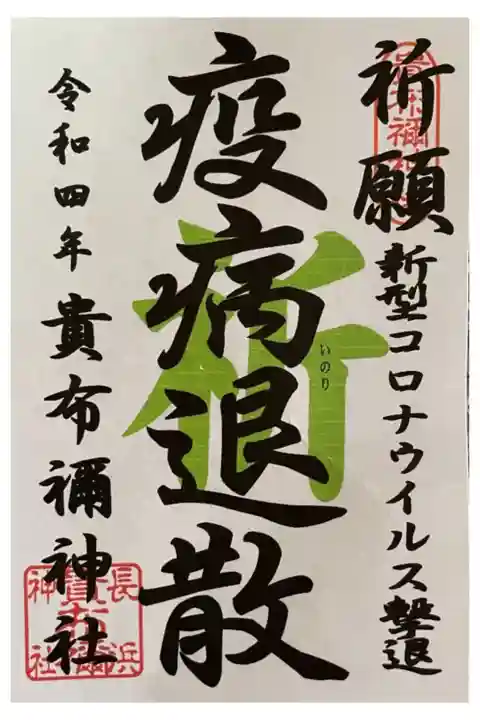 祈願 新型コロナウイルス撃退
疫病退散
祈
いのり
令和四年 貴布禰神社
貴布禰神社
長浜
貴布禰
神社